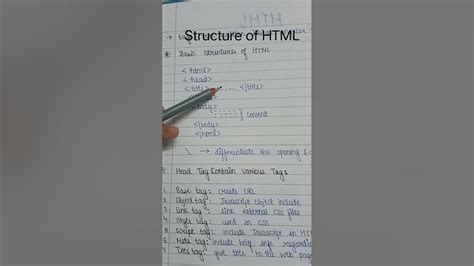 HTML
Structure of HTML
Basic Structures of HTML
<html>
<head>
<title> ..... </title>
<body>
content
</body>
</html>
\ → differentiate the opening &
Head Tag Contain Various Tag:
1 Base tag: create URL
2 Object tag: Javascript object include
3 Link tag: link external css files
4 Style tag: used in css
5 Script tag: include Javascript in HT
6 Meta tag: include info
7 Title tag: give title to the web page